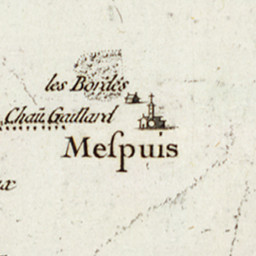 les Bordes
Chau Gaillard
Meſpuis
x